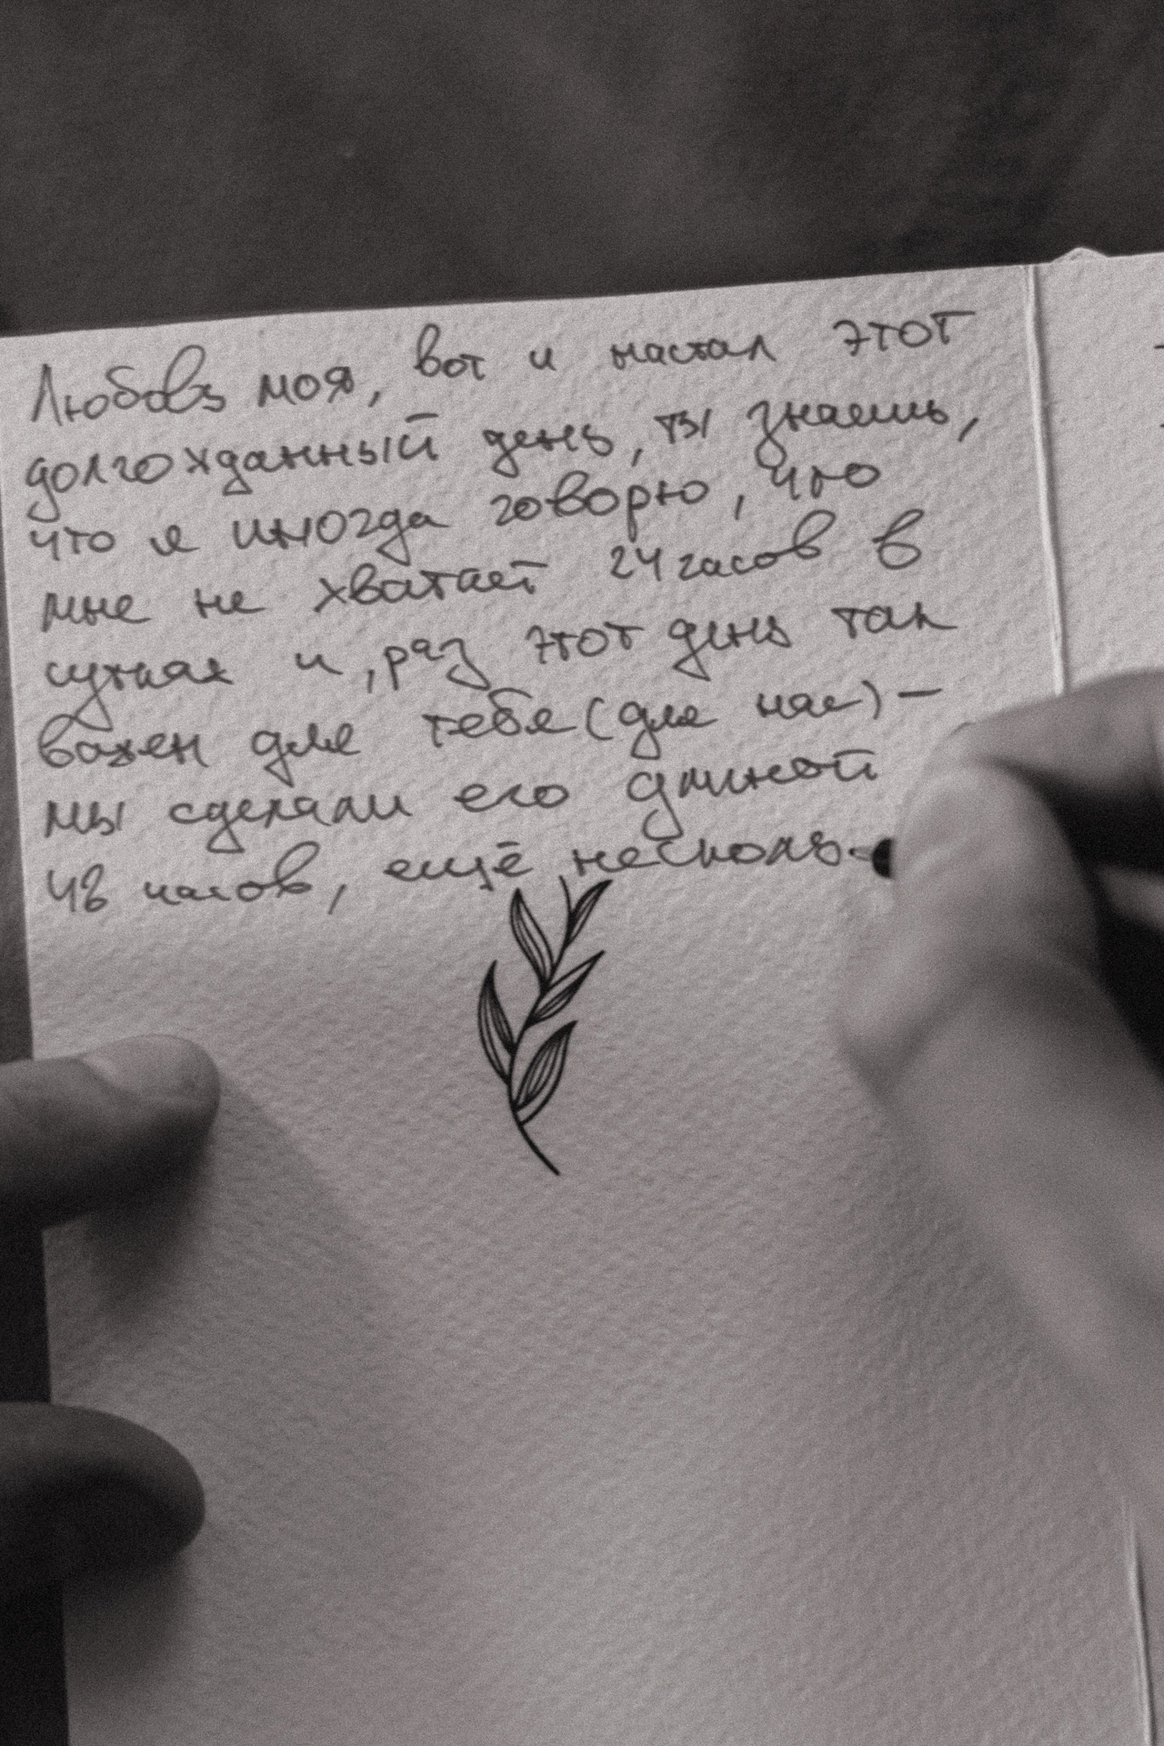 Любовь моя, вот и настал этот
долгожданный день, ты знаешь,
что я иногда говорю, что
мне не хватает 24 часов в
сутках и, раз этот день так
важен для тебя (для нас) –
мы сделали его длиной
48 часов, ещё несколь-